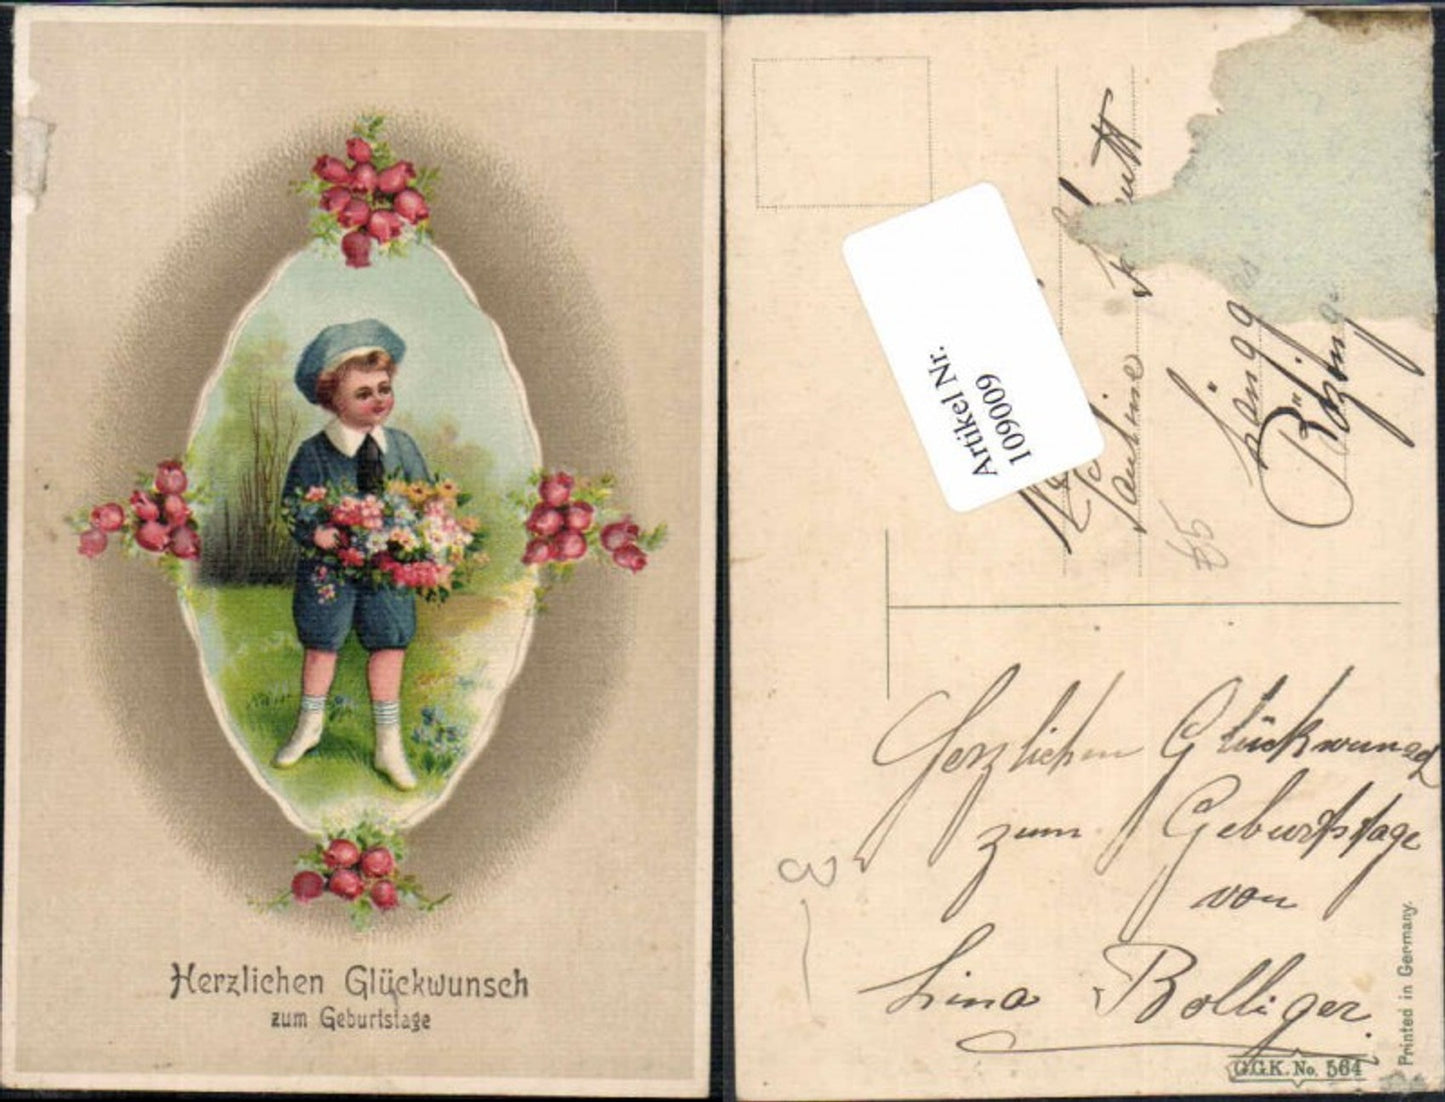 Herzlichen Glückwunsch
zum Geburtstage
Artikel Nr.
109009
Pauline
Länggas
65
Herzlichen Glückwunsch
zum Geburtstage
von
Lina Bolliger.
8
Printed in Germany.
G.G.K. No. 564